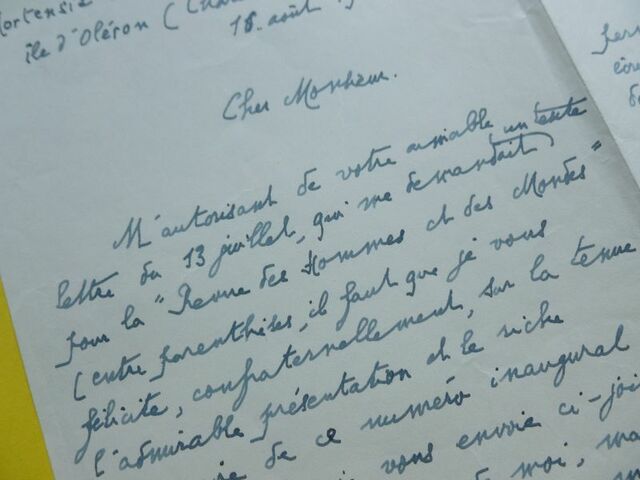 île d'Oléron (
18. août
Cher Monsieur.
M'autorisant de votre aimable
lettre du 13 juillet, qui me demandait un texte
pour la "Revue des Hommes et des Mondes"
(entre parenthèses, il faut que je vous
félicite, confraternellement, sur la tenue
l'admirable présentation et le riche
de ce numéro inaugural
vous envoie ci-joi
de moi, ma